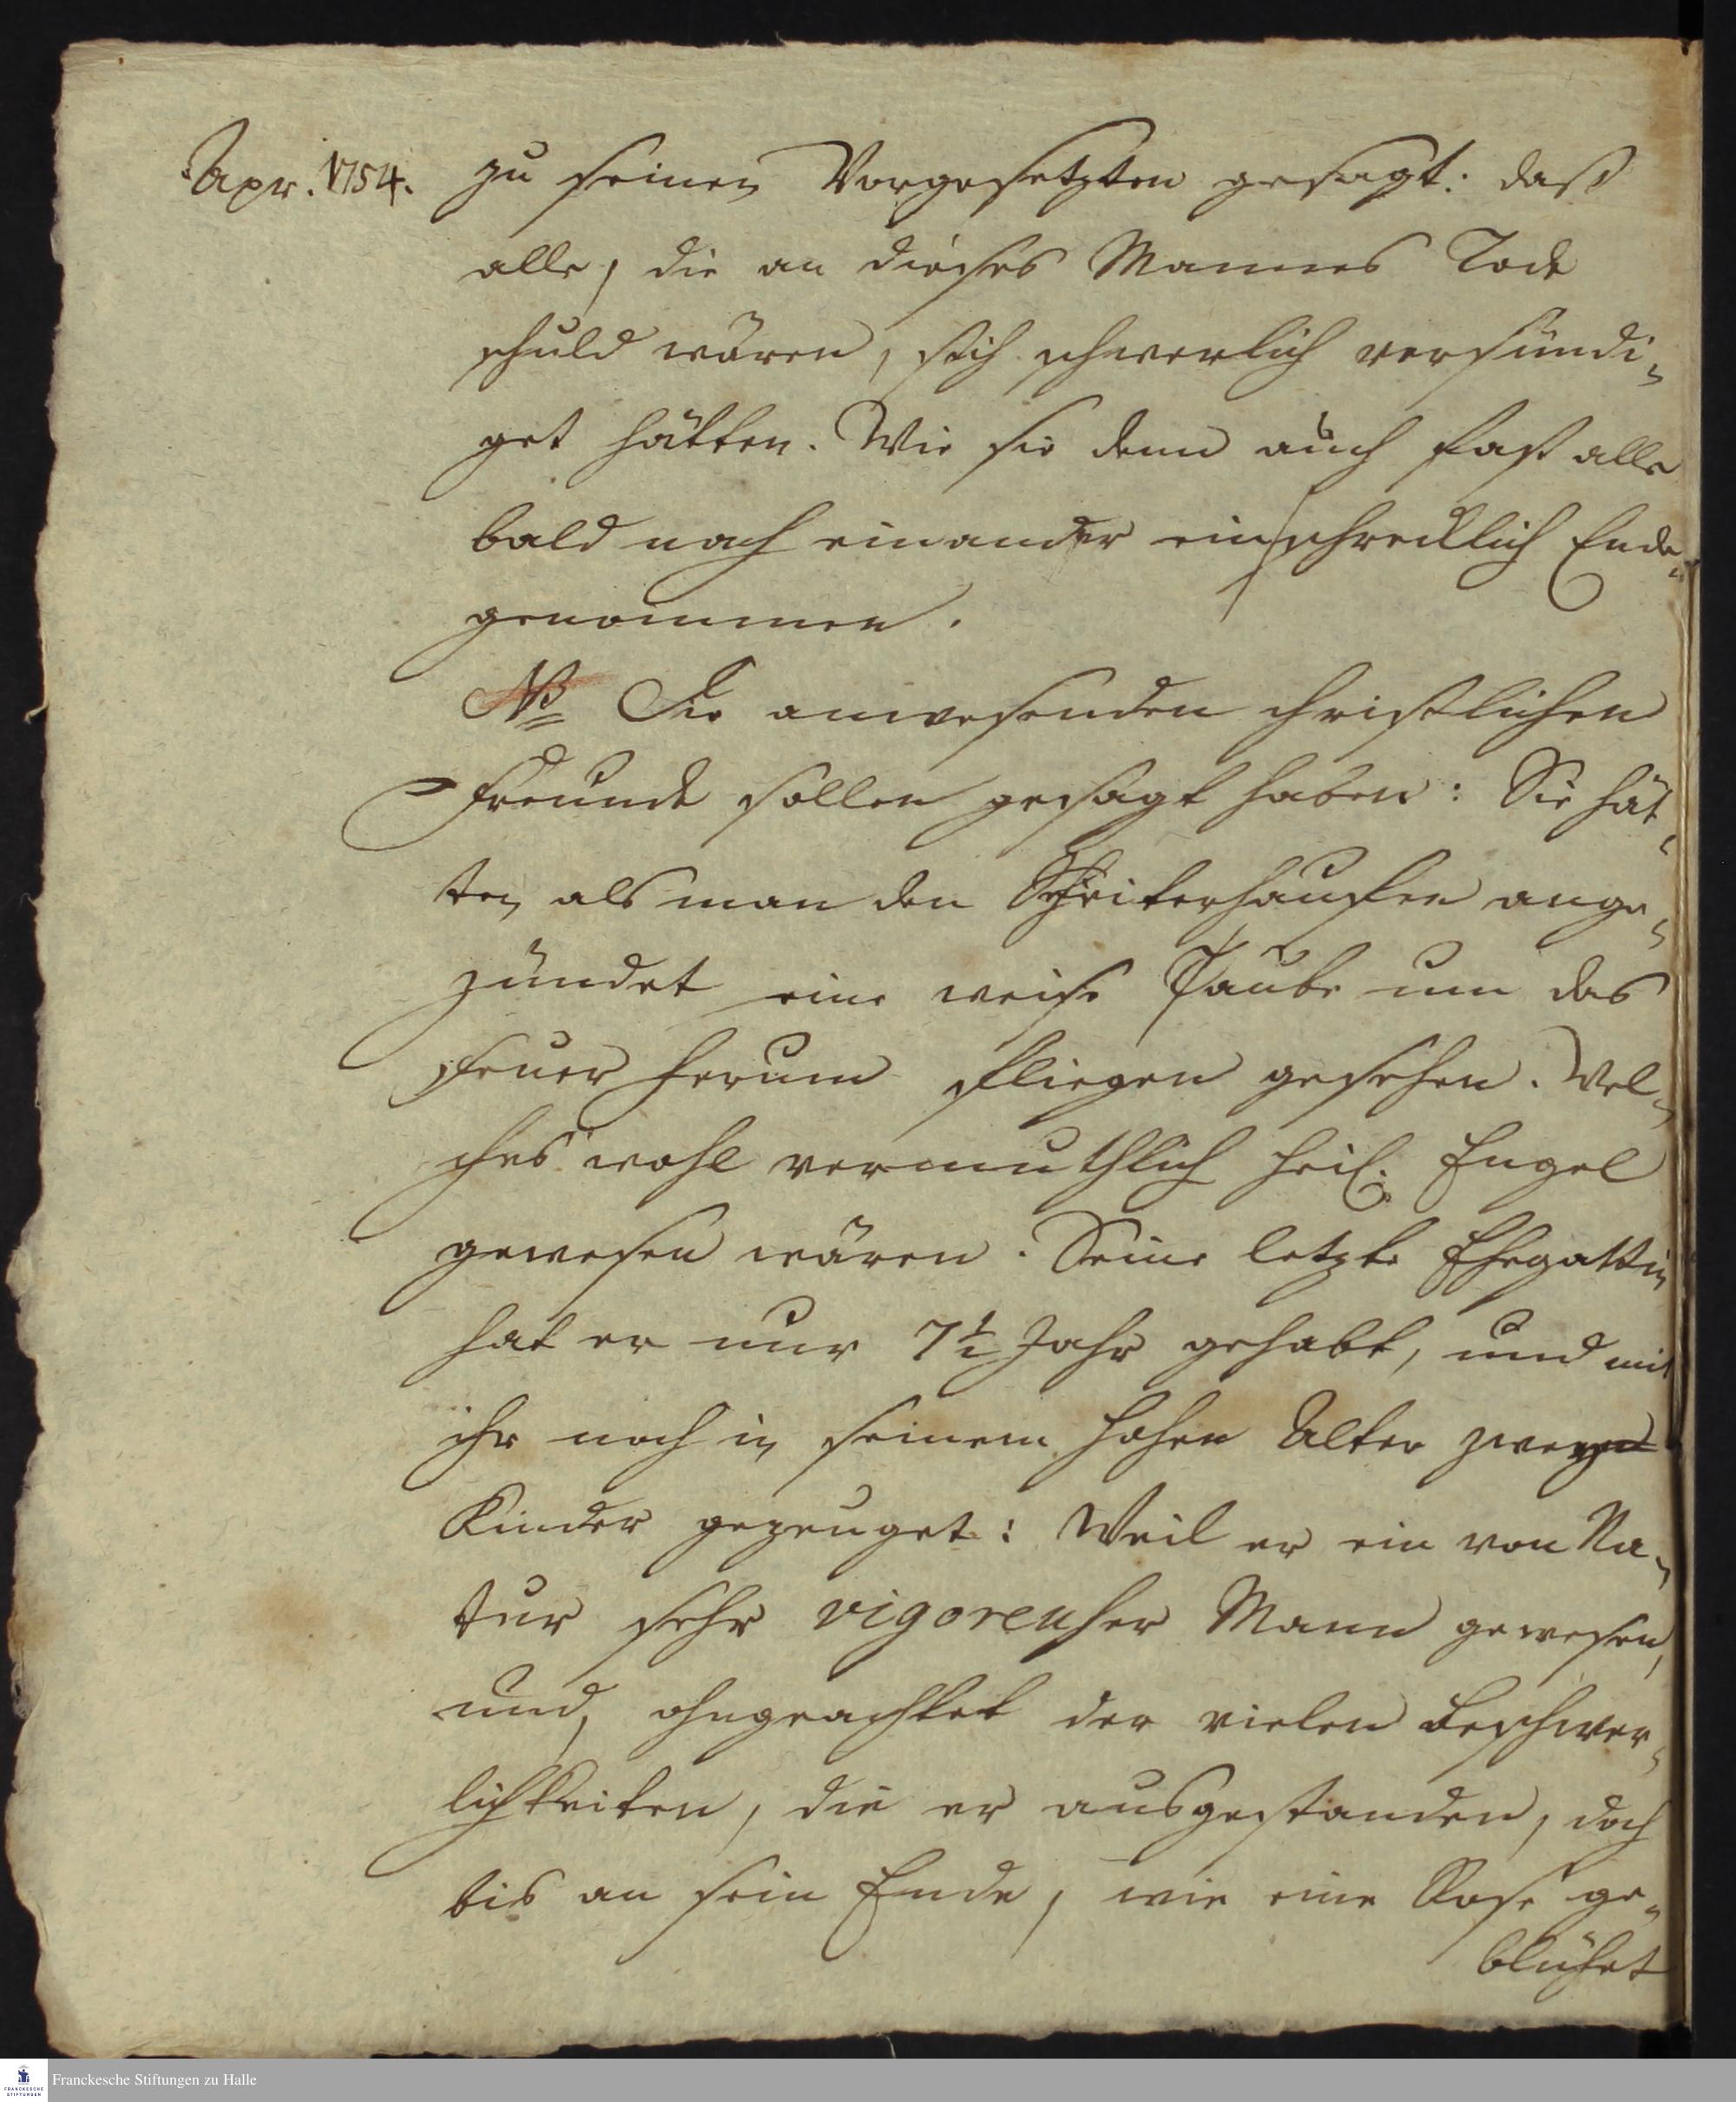 Apr. 1754.
zu seinen Vorgesetzten gesagt: daß
alle, die an dieses Mannes Tode
schuld wären, sich schwerlich versündi-
get hätten. Wie sie denn auch fast alle
bald nach einander ein schrecklich Ende
genommen.
NB Die anwesenden christlichen
Freunde sollen gesagt haben: Sie hät-
ten als man den Scheiterhauffen ange-
zündet eine weise Taube um das
Feuer herum fliegen gesehen. Wel-
ches wohl vermuthlich heil. Engel
gewesen wären. Seine letzte Ehegattin
hat er nur 7½ Jahr gehabt, und mit
ihr noch in seinem hohen Alter zwey
Kinder gezeuget: Weil er ein von Na-
tur sehr vigoreuser Mann gewesen,
und, ohngeachtet der vielen Beschwer-
lichkeiten, die er ausgestanden, doch
bis an sein Ende, wie eine Rose ge-
blühet
Franckesche Stiftungen zu Halle
FRANCKESCHE
STIFTUNGEN